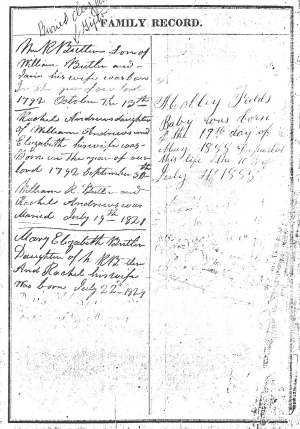 FAMILY RECORD.
Wm R Butler Son of
William Butler and
his wife was born
In the year of our lord
1792 October the 13th
Rachel Andrews daughter
of William Andrews and
Elizabeth his wife was
Born in the year of our
lord 1792 September 30th
William R. Butler and
Rachel Andrews was
Maried July 19th 1821
Mary Elizabeth Butler
Daughter of W R Butler
And Rachel his wife
Was born July 22
Molley Fields
Baby was born
the 19th day of
May 1888 Departed
this life the
July 1888